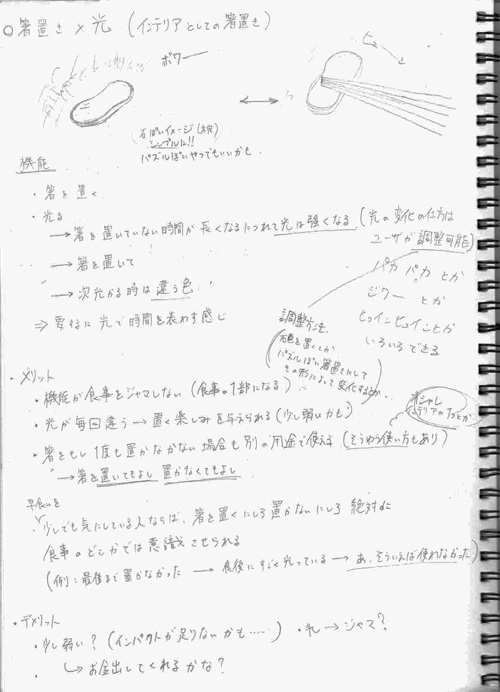 ○箸置き × 光 (インテリアとしての箸置き)
ポワー
石っぽいイメージ(木炭)
シンプルに!!
パズルぽいやつでもいいかも
機能
・箸を置く
・光る
→箸を置いていない時間が長くなるにつれて光は強くなる (光の変化の仕方は
ユーザが調整可能)
→箸を置いて
→次光かる時は違う色
パカパカとか
ジワーとか
ヒョインヒョインことか
いろいろできる
⇒要するに光で時間を表わす感じ
調整方法
石を置くとか
パズルぽい箸置きにして
その形によって変化するか
・メリット
・機能が食事をジャマしない (食事の1部になる)
オシャレ
インテリアの1つとか
・光が毎回違う → 置く楽しみを与えられる (少し弱いかも)
・箸をもし1度も置かながない場合も別の用途で使える (そうゆう使い方もあり)
→箸を置いてもよし 置かなくてもよし
早食いを
・少しでも気にしている人ならば、箸を置くにしろ置かないにしろ 絶対に
食事のどこかでは意識させられる
(例:最後まで置かなかった → 食後にすごく光っている → あ、そういえば使わなかった)
・デメリット
・少し弱い? (インパクトが足りないかも……) ・光→ジャマ?
・ ↳お金出してくれるかな?